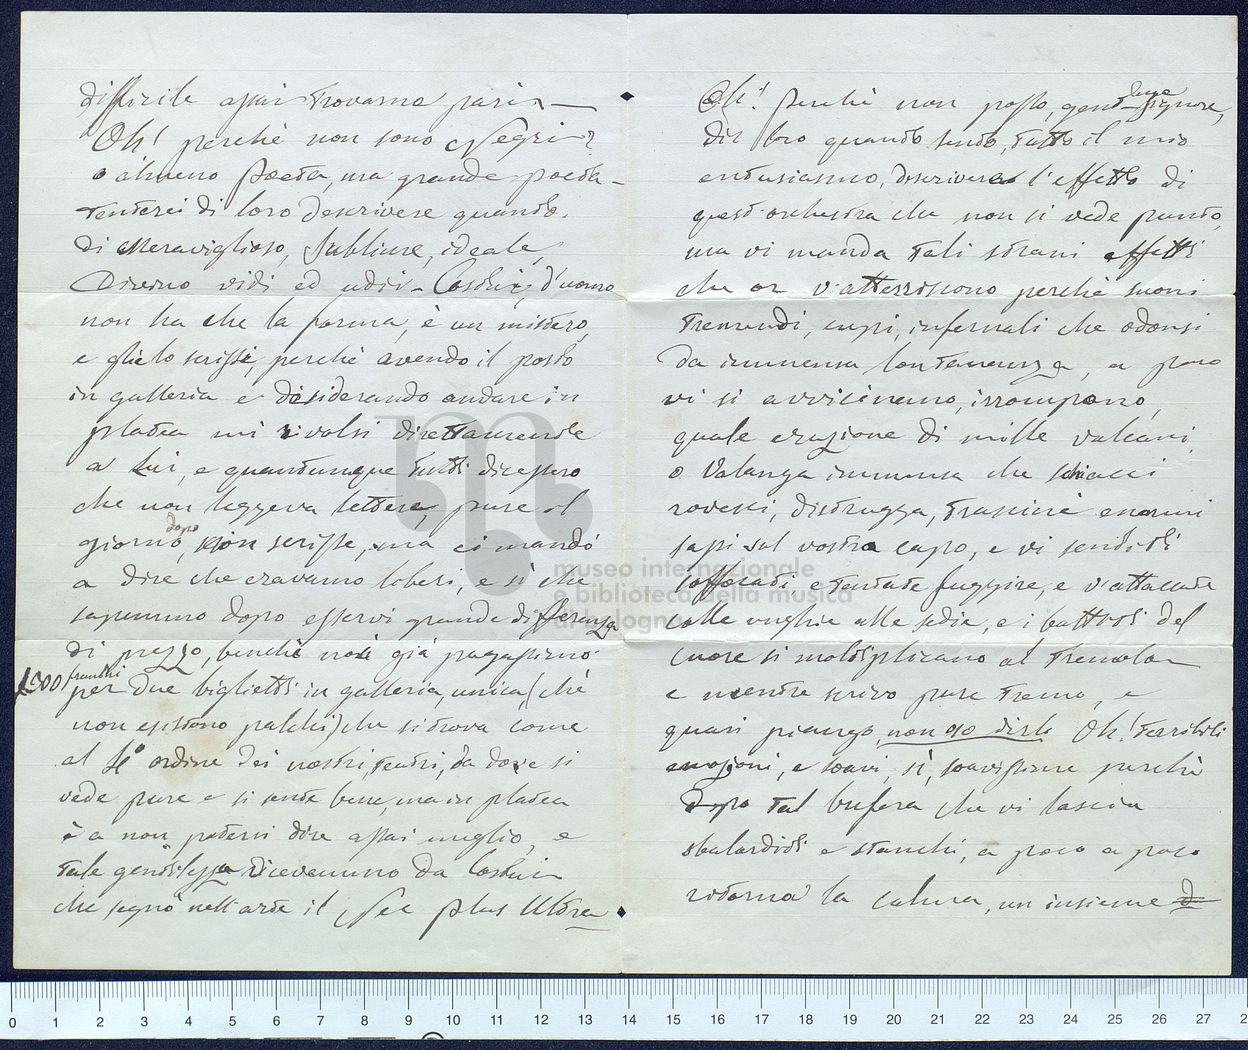 difficile assai trovarne pari —
Oh! perchè non sono Negri?
o almeno Poeta, ma grande poeta —
tenterei di loro descrivere quanto
di Meraviglioso, Sublime, ideale,
Divino vidi ed udii. Costui, d'uomo
non ha che la forma, è un mistero,
e glielo scrissi, perchè avendo il posto
in galleria e desiderando andare in
platea mi rivolsi direttamente
a Lui, e quantunque tutti dicessero
che non leggeva lettere, pure il
giorno dopo, non scrisse, ma ci mandò
a dire che eravamo liberi, e sì che
sapemmo dopo esservi grande differenza
di prezzo, benchè noi già pagassimo
franchi
per due biglietti in galleria, unica, (chè
non esistono palchi) che si trova come
al 4° ordine dei nostri teatri, da dove si
vede pure e si sente bene, ma in platea
è a non potersi dire assai meglio, e
tale gentilezza ricevemmo da Costui
che segnò nell'arte il Nec plus Ultra
Oh! perchè non posso, gentili due signore,
dir loro quanto sento, tutto il mio
entusiasmo, descrivere l'effetto di
quest'orchestra che non si vede punto,
ma vi manda tali strani effetti
che or v'atterriscono perchè suoni
tremendi, cupi, infernali che odonsi
da immensa lontananza, a poco
vi si avvicinano, irrompono,
quale eruzione di mille vulcani,
o Valanga immensa che schiacci
rovesci, distrugga, trascini enormi
sassi sul vostro capo, e vi sentite
soffocati, e tentate fuggire, e v'attaccate
colle unghie alle sedie, e i battiti del
cuore si moltiplicano al tremolar
e mentre scrivo pure tremo, e
quasi piango, non so dirle Oh! terribili
emozioni, e soavi, sì, soavissime perchè
dopo tal bufera che vi lascia
sbalorditi e stanchi, a poco a poco
ritorna la calma, un insieme di
museo internazionale
e biblioteca della musica
di bologna
0 1 2 3 4 5 6 7 8 9 10 11 12 13 14 15 16 17 18 19 20 21 22 23 24 25 26 27